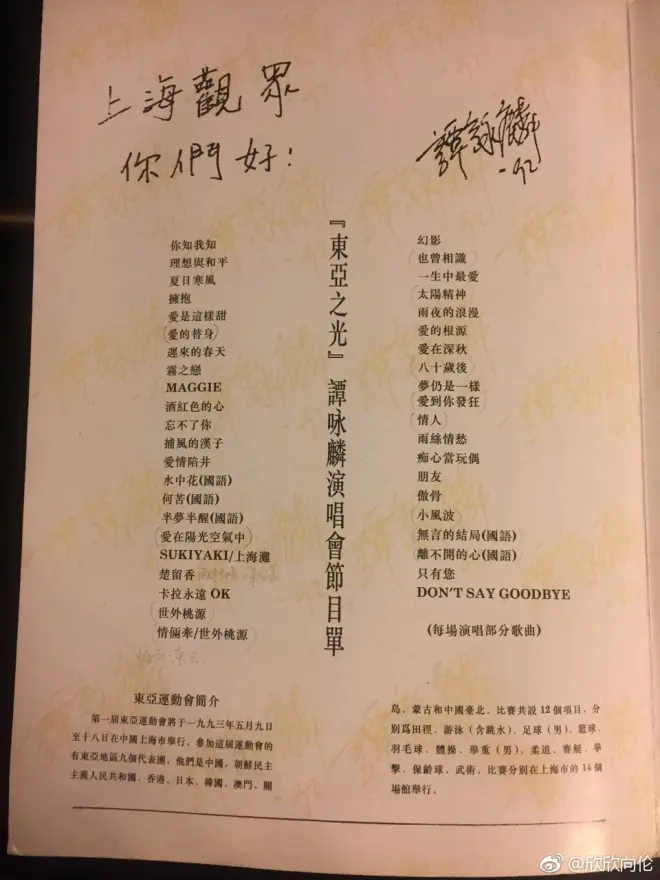 上海觀眾
你們好！
譚詠麟
-92
『東亞之光』譚咏麟演唱會節目單
你知我知
理想與和平
夏日寒風
擁抱
愛是這樣甜
(愛的替身)
遲來的春天
霧之戀
MAGGIE
酒紅色的心
忘不了你
捕風的漢子
愛情陷井
水中花(國語)
何苦(國語)
半夢半醒(國語)
(愛在陽光空氣中)
SUKIYAKI/上海灘
楚留香
卡拉永遠 OK
(世外桃源
情侶牽/世外桃源)
幻影
(也曾相識)
一生中最愛
(太陽精神)
雨夜的浪漫
愛的根源
愛在深秋
(八十歲後)
夢仍是一樣
(愛到你發狂)
(情人)
雨絲情愁
痴心當玩偶
朋友
傲骨
(小風波)
無言的結局(國語)
離不開的心(國語)
只有您
DON'T SAY GOODBYE
(每場演唱部分歌曲)
東亞運動會簡介
第一届東亞運動會將于一九九三年五月九日
至十八日在中國上海市舉行。參加這届運動會的
有東亞地區九個代表團，他們是中國、朝鮮民主
主義人民共和國、香港、日本、韓國、澳門、關
島、蒙古和中國臺北。比賽共設12個項目，分
別爲田徑、游泳（含跳水）、足球（男）、籃球、
羽毛球、體操、舉重（男）、柔道、賽艇、拳
擊、保齡球、武術。比賽分别在上海市的14個
場館舉行。
@欣欣向伦